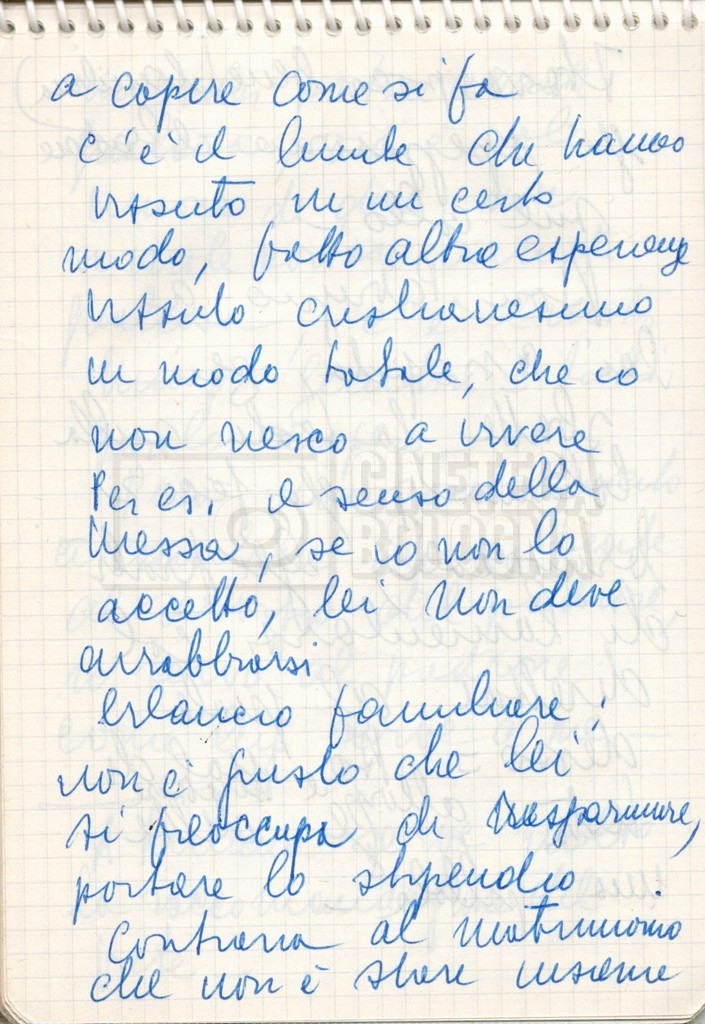 a capire come si fa
c'è il limite che hanno
vissuto in un certo
modo, fatto altre esperienze
vissuto cristianesimo
in modo totale, che io
non riesco a vivere
Per es. il senso della
Messa, se io non lo
accetto, lei non deve
arrabbiarsi
bilancio familiare:
non è giusto che lei
si preoccupa di risparmiare,
portare lo stipendio.
Contraria al matrimonio
che non è stare insieme
CINETECA
BOLOGNA